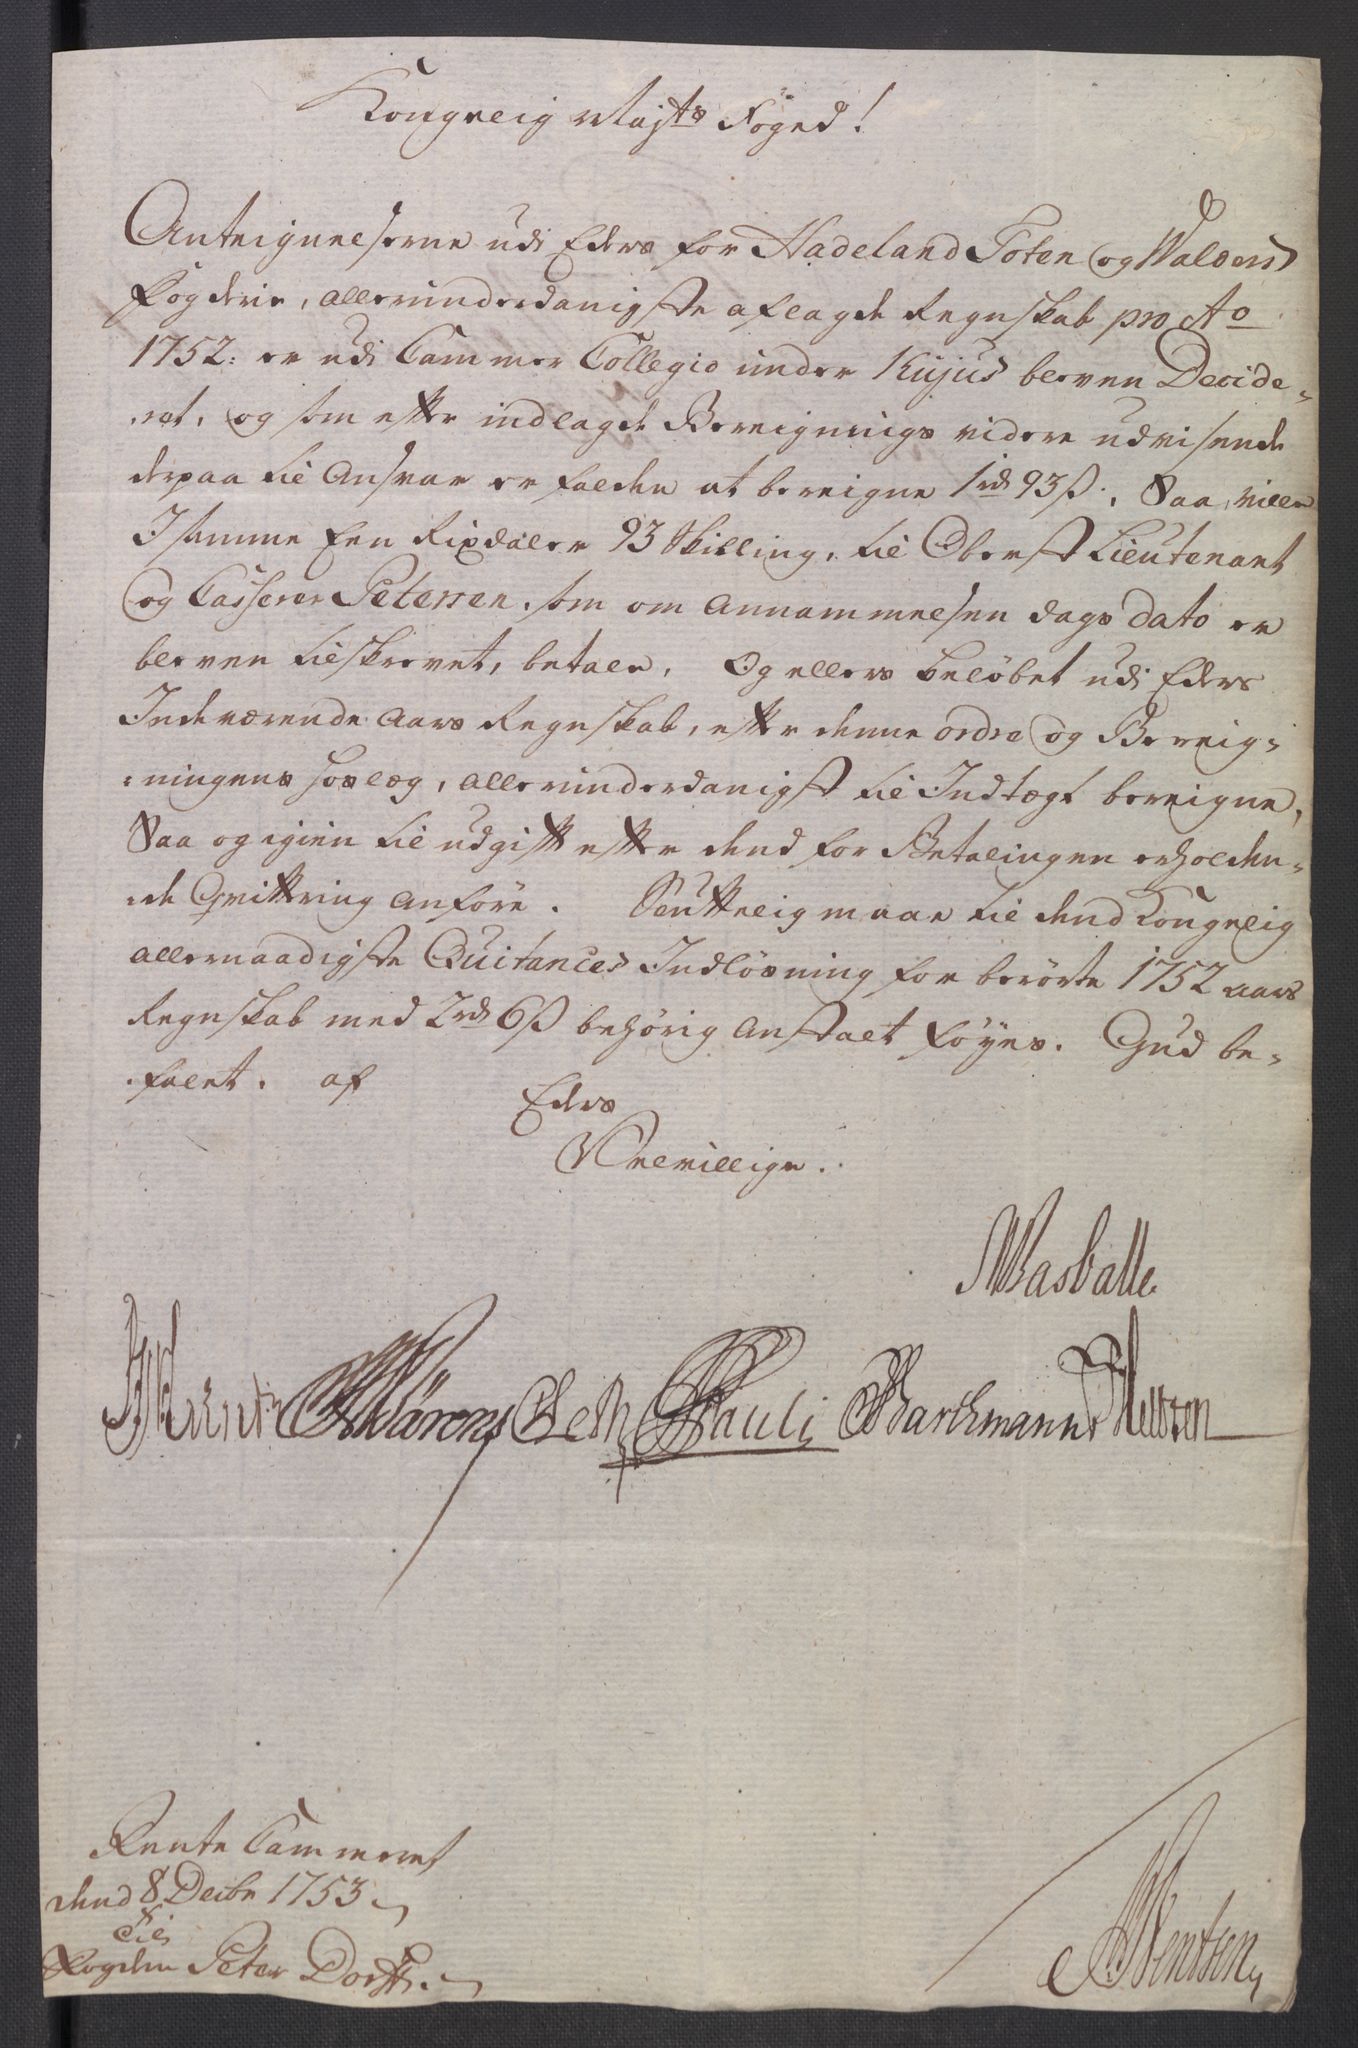 Kongelig Majts Foged!
Anteignelserne udi Eders for Hadeland Toten og Walders
Fogderie, allerunderdanigste aflagde Regnskab pro Ao
1752: er udi Cammer Collegio under Hujus bleven Decide-
-ret, og som efter indlagde Bereignings videre udvisende
derpaa til Ansvar er falden at bereigne 1 rd 93 ß. Saa ville
I samme Een Rixdaler 93 Skilling, til Oberst Lieutenant
og Casserer Petersen, som om Annammelsen dags dato er
bleven tilskrevet, betale, Og ellers beløbet udi Eders
Indeværende Aars Regnskab, efter denne ordre og Bereig-
-ningens hoslæg, allerunderdanigst til Indtægt bereigne,
Saa og igien til udgift efter dend for Betalingen erholden-
-de Qvittering anføre. Endtelig maae til dend Kongelig
allernaadigste Quitances Indløsning for berørte 1752 aars
Regnskab med 2 rd 6 ß behørig Anstalt føyes. Gud be-
-falet. af
Eders
Velvillige.
Wasballe
Klørens Leth Pauli Barthmann Nelsen
Rente Cammeret
dend 8 Decbr 1753
Til
Fogden Peter Dorff.
Wentsen